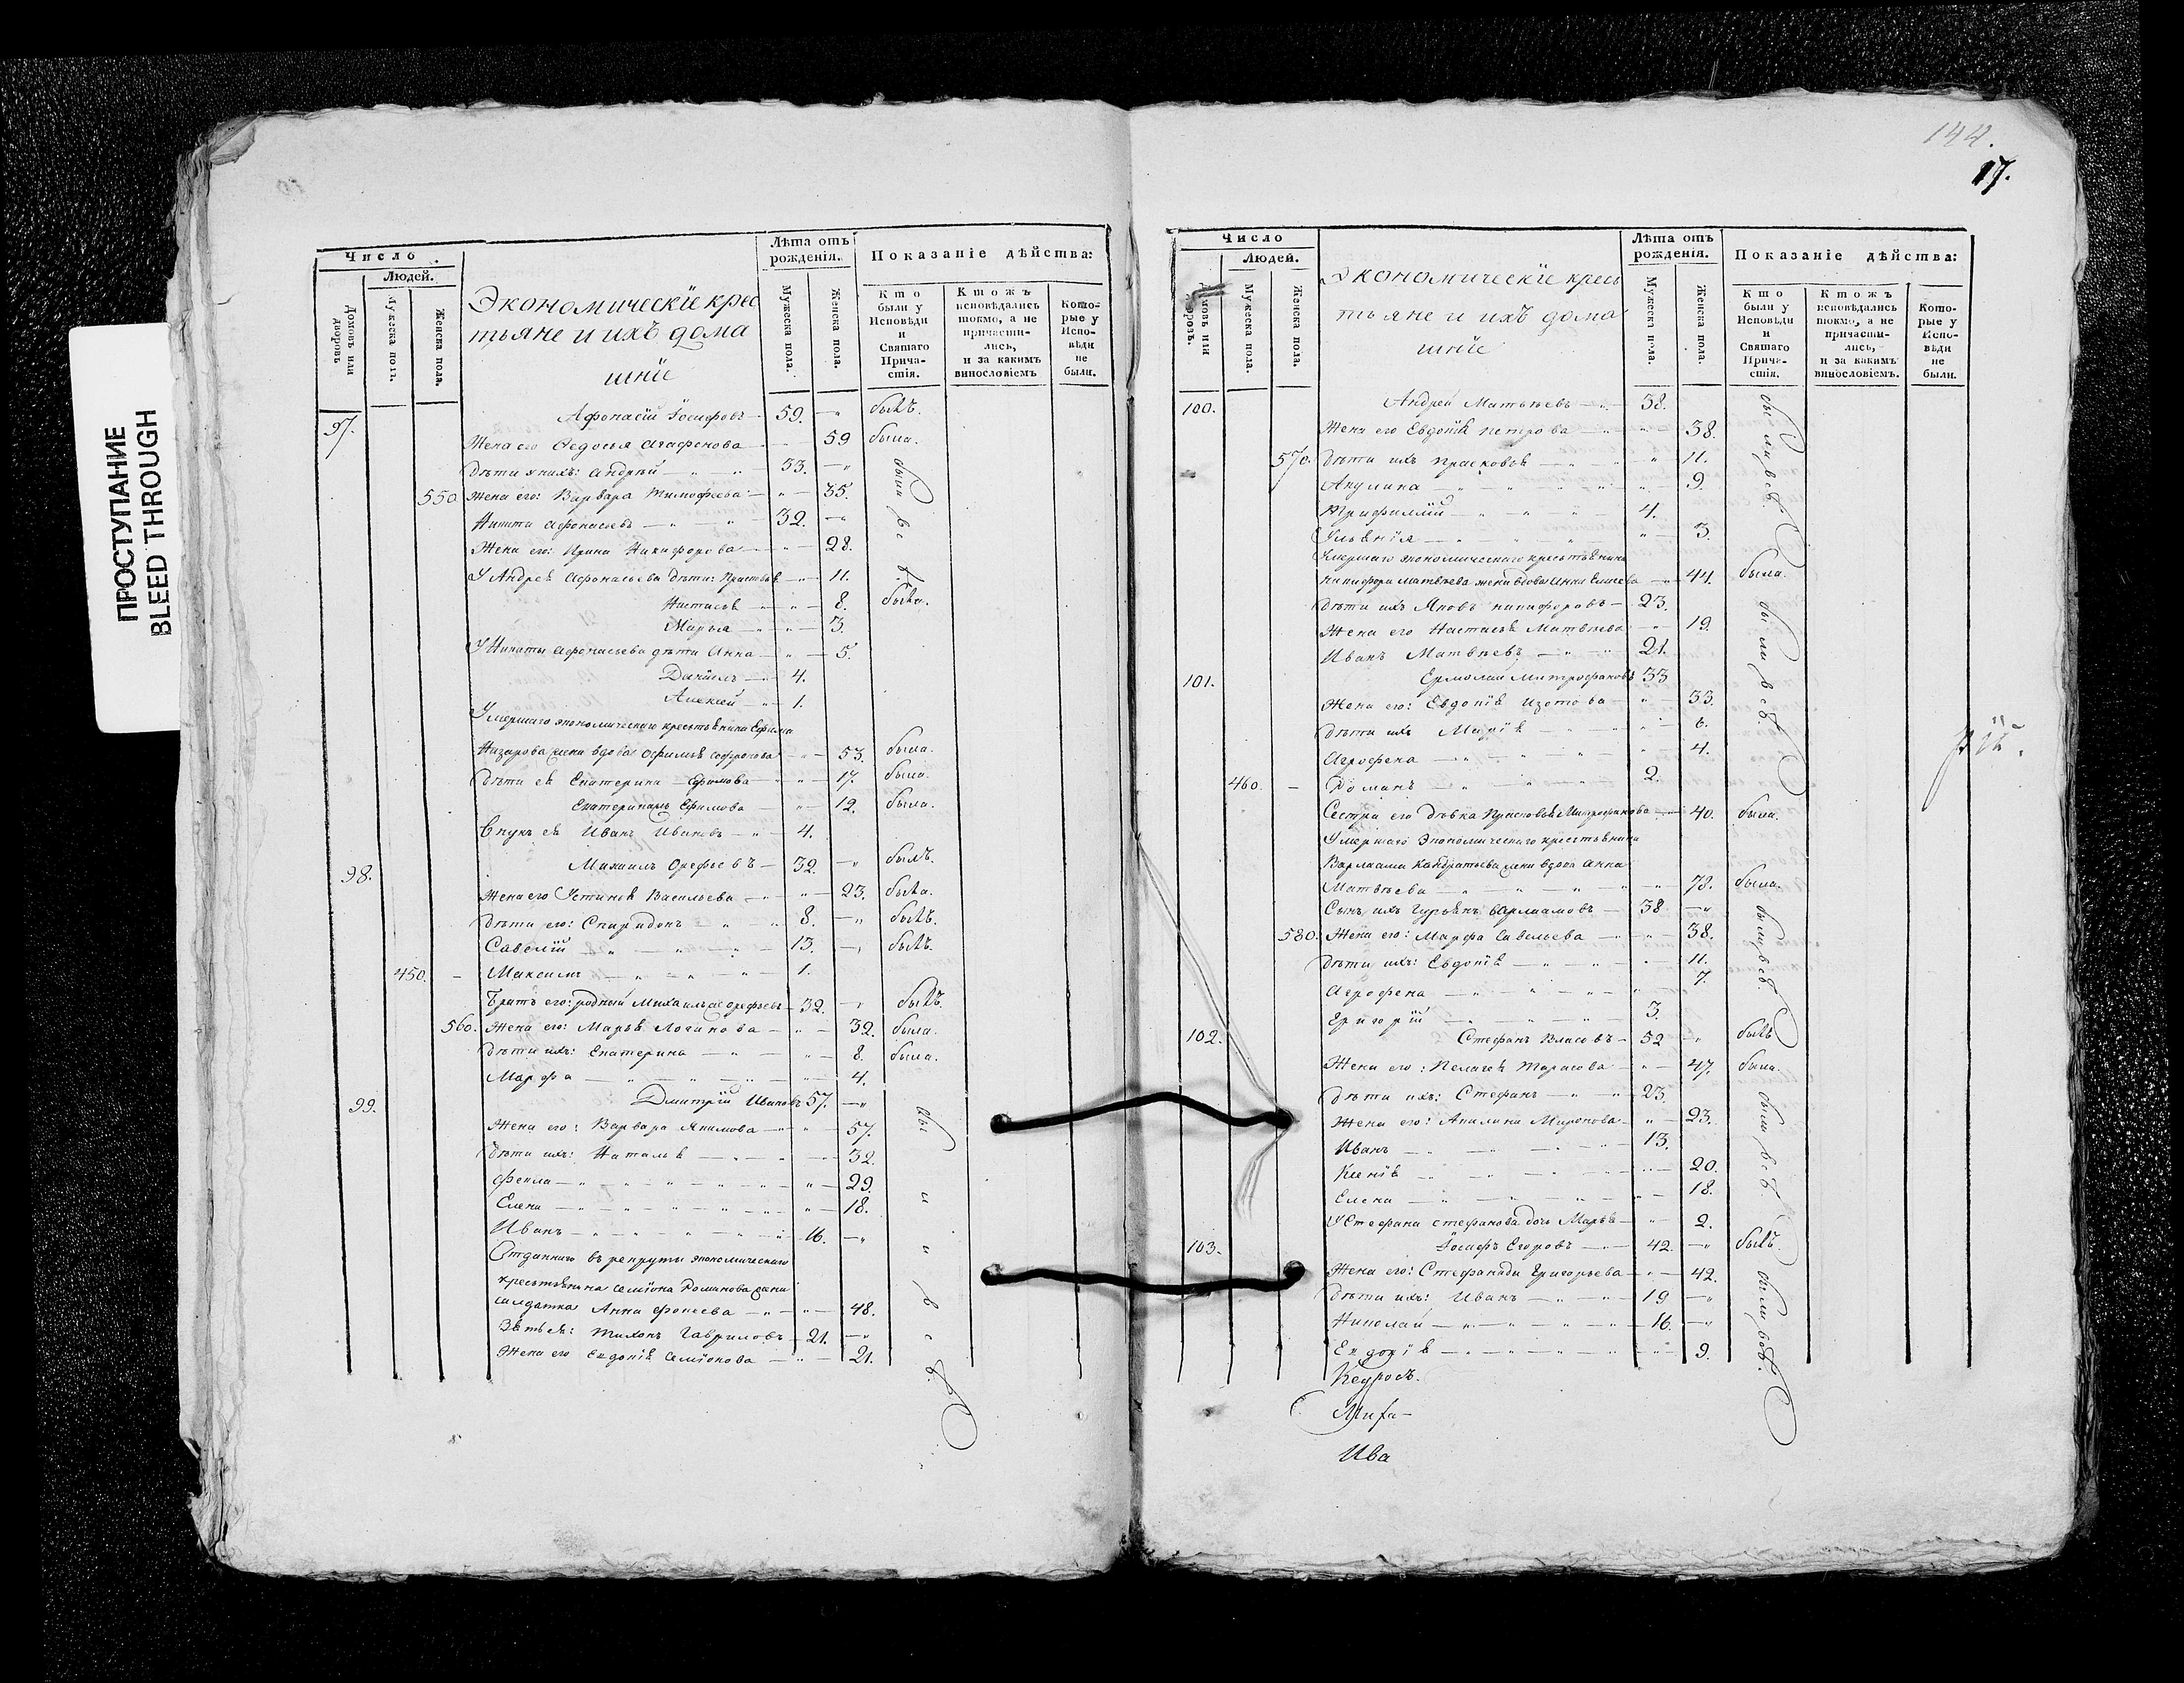 ПРОСТУПАНИЕ
BLEED THROUGH
Число
Людей.
Домовъ или дворовъ
Мужеска полъ.
Женска пола.
Экономическіе крес
тьяне и ихъ дома
шніе
Лѣта отъ
рожденія.
Мужеска пола.
Женска пола.
Показаніе дѣйства:
Кто были у Исповѣди и Святаго Причастія.
Ктожъ исповѣдались токмо, а не причастились, и за какимъ винословіемъ
Которые у Исповѣди не были.
97. Афонасій Іосифовъ 59. былъ.
Жена его Ѳедосья Агафонова 59 была.
Дѣти у нихъ: Андрѣй 53.
550 Жена его: Варвара Тимофеева 35.
Никита Афонасьевъ 32.
Жена его: Ирина Никифорова 28.
У Андрея Афонасьева дѣти: Прасковья 11.
Настасья 8. была.
Марья 3.
У Никиты Афонасьева дѣти Анна 5.
Даніилъ 4.
Алексѣй 1.
Умершаго экономическаго крестьянина Ефима
Назарова жена вдова Офимья 53. была.
Дѣти ея Екатерина Ефимова 17. была.
Екатерина Ефимова 12. была.
Внукъ ея Иванъ Ивановъ 4.
98. Михаилъ Орефьевъ 32. былъ.
Жена его Устинья Васильева 23. была.
Дѣти его: Спиридонъ 8. былъ.
Савелій 13. былъ.
450. Максимъ 1.
Братъ его: родный Михаилъ Орефьевъ 32. былъ.
560. Жена его: Марья Логинова 32. была.
Дѣти ихъ: Екатерина 8. была.
Марфа 4.
99. Дмитрій Ивановъ 57.
Жена его: Варвара Якимова 57.
Дѣти ихъ: Наталья 32.
Фекла 29.
Елена 18.
Иванъ 16.
Отданнаго въ рекруты экономическаго
крестьянина Семіона Романова жена
салдатка Анна Фокеева 48.
Зять ея: Тихонъ Гавриловъ 21.
Жена его Евдокія Семіонова 21.
были всѣ
144.
17.
Число
Людей.
Домовъ или дворовъ.
Мужеска пола.
Женска пола.
Экономическіе крес
тьяне и ихъ дома
шніе
Лѣта отъ
рожденія.
Мужеска пола.
Женска пола.
Показаніе дѣйства:
Кто были у Исповѣди и Святаго Причастія.
Ктожъ исповѣдались токмо, а не причастились, и за какимъ винословіемъ.
Которые у Исповѣди не были.
100. Андрей Матвѣевъ 38.
Жена его Евдокія Петрова 38.
570. Дѣти ихъ Прасковья 11.
Акулина 9.
Трифиллій 4.
Ульянія 3.
были всѣ
Умершаго экономическаго крестьянина
Никифора Матвѣева жена вдова Анна 44. была.
Дѣти ихъ Яковъ Никифоровъ 23.
Жена его Настасья Матвѣева 19.
Иванъ Матвѣевъ 21.
101. Ермолай Митрофановъ 33
Жена его: Евдокія Изотова 33.
Дѣти ихъ Марія 6.
Агрофена 4.
460. Романъ 2.
были всѣ.
Сестра его дѣвка Прасковья Митрофанова 40. была.
Умершаго Экономическаго крестьянина
Варлаама Кандратьева жена вдова Анна
Матвѣева 78. была.
Сынъ ихъ Гурьянъ Варлаамовъ 38
580. Жена его: Марфа Савельева 38.
Дѣти ихъ: Евдокія 11.
Агрофена 7.
Григорій 3.
были всѣ.
102. Стефанъ Власовъ 52 былъ
Жена его: Пелагея Тарасова 47. была.
Дѣти ихъ: Стефанъ 23.
Жена его: Акилина Миронова 23.
Иванъ 13.
Ксенія 20.
Елена 18.
У Стефана Стефанова дочь Марья 2.
были всѣ.
103. Іосифъ Егоровъ 42. былъ.
Жена его: Стефанида Григорьева 42.
Дѣти ихъ: Иванъ 19
Николай 16.
Евдокія 9.
были всѣ.
Ива